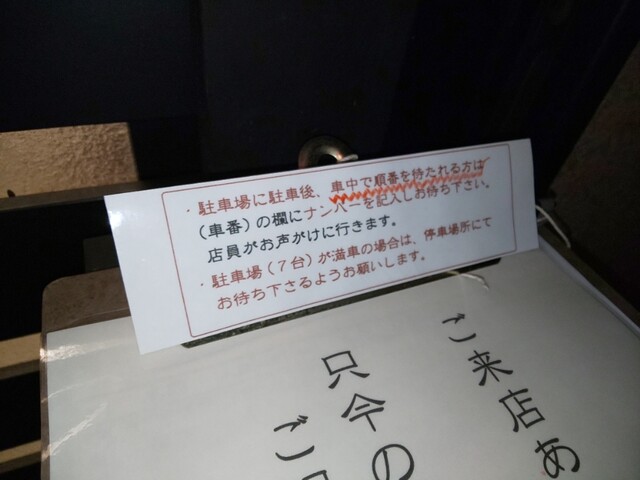 ・駐車場に駐車後、車中で順番を待たれる方は
（車番）の欄にナンバーを記入しお待ち下さい。
店員がお声がけに行きます。
・駐車場（７台）が満車の場合は、停車場所にて
お待ち下さるようお願いします。
ご来店あ
只今の
ご